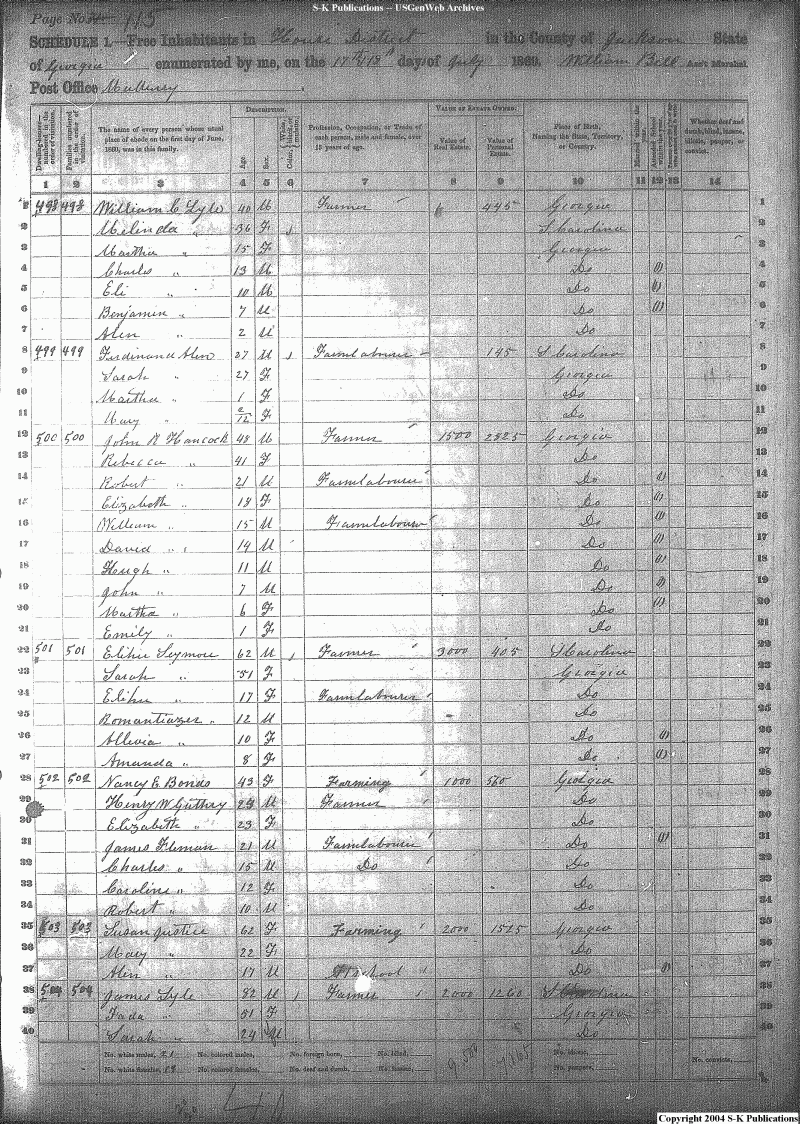 S-K Publications -- USGenWeb Archives
Page No. 115
SCHEDULE 1.—Free Inhabitants in House District in the County of Jackson State
of Georgia enumerated by me, on the day of July 1860. William Bell Ass't Marshal.
Post Office Mulberry
DESCRIPTION. VALUE OF ESTATE OWNED.
Dwelling-houses—numbered in the order of visitation. Families numbered in the order of visitation. The name of every person whose usual place of abode on the first day of June, 1860, was in this family. Age. Sex. Color, Profession, Occupation, or Trade of each person, male and female, over 15 years of age. Value of Real Estate. Value of Personal Estate. Place of Birth, Naming the State, Territory, or Country. Whether deaf and dumb, blind, insane, idiotic, pauper, or convict.
1 2 3 4 5 6 7 8 9 10 11 12 13 14
1 498 498 William C Lyle 40 M Farmer 445 Georgia 1
2 Melinda " 36 F S Carolina 2
3 Martha " 15 F Georgia 3
4 Charles " 13 M Do (1) 4
5 Eli " 10 M Do (1) 5
6 Benjamin " 7 M Do (1) 6
7 Alen " 2 M Do 7
8 499 499 Ferdinand Alen 27 M Farmlabourer 145 S Carolina 8
9 Sarah " 27 F Georgia 9
10 Martha " 1 F Do 10
11 Mary " 2/12 F Do 11
12 500 500 John R Hancock 48 M Farmer 1500 2825 Georgia 12
13 Rebecca " 41 F Do 13
14 Robert " 21 M Farmlabourer Do (1) 14
15 Elizabeth " 18 F Do (1) 15
16 William " 15 M Farmlabourer Do (1) 16
17 David " 14 M Do (1) 17
18 Hugh " 11 M Do (1) 18
19 John " 7 M Do (1) 19
20 Martha " 6 F Do (1) 20
21 Emily " 1 F Do 21
22 501 501 Elihu Seymore 62 M Farmer 3000 405 S Carolina 22
23 Sarah " 51 F Georgia 23
24 Elihu " 17 F Farmlabourer Do 24
25 Romantiazer " 12 M Do 25
26 Allivia " 10 F Do (1) 26
27 Amanda " 8 F Do (1) 27
28 502 502 Nancy E Bonds 43 F Farming 1000 560 Georgia 28
29 Henry W Guthry M Farmer Do 29
30 Elizabeth " 23 F Do 30
31 James Fleman 21 M Farmlabourer Do (1) 31
32 Charles " 15 M Do Do 32
33 Caroline " 12 F Do 33
34 Robert " 10 M Do 34
35 503 503 Susan Justice 62 F Farming 2000 1525 Georgia 35
36 Mary " 22 F Do 36
37 Alen " 17 M At school Do (1) 37
38 504 504 James Lyle 82 M Farmer 2000 1260 S Carolina 38
39 Fada " 51 F Georgia 39
40 Sarah " 24 Do 40
No. white males, 21 No. colored males, No. foreign born, No. blind, 9,500 7,165 No. idiotic, No. convicts,
No. white females, 19 No. colored females, No. deaf and dumb, No. insane, No. paupers,
40
Copyright 2004 S-K Publications